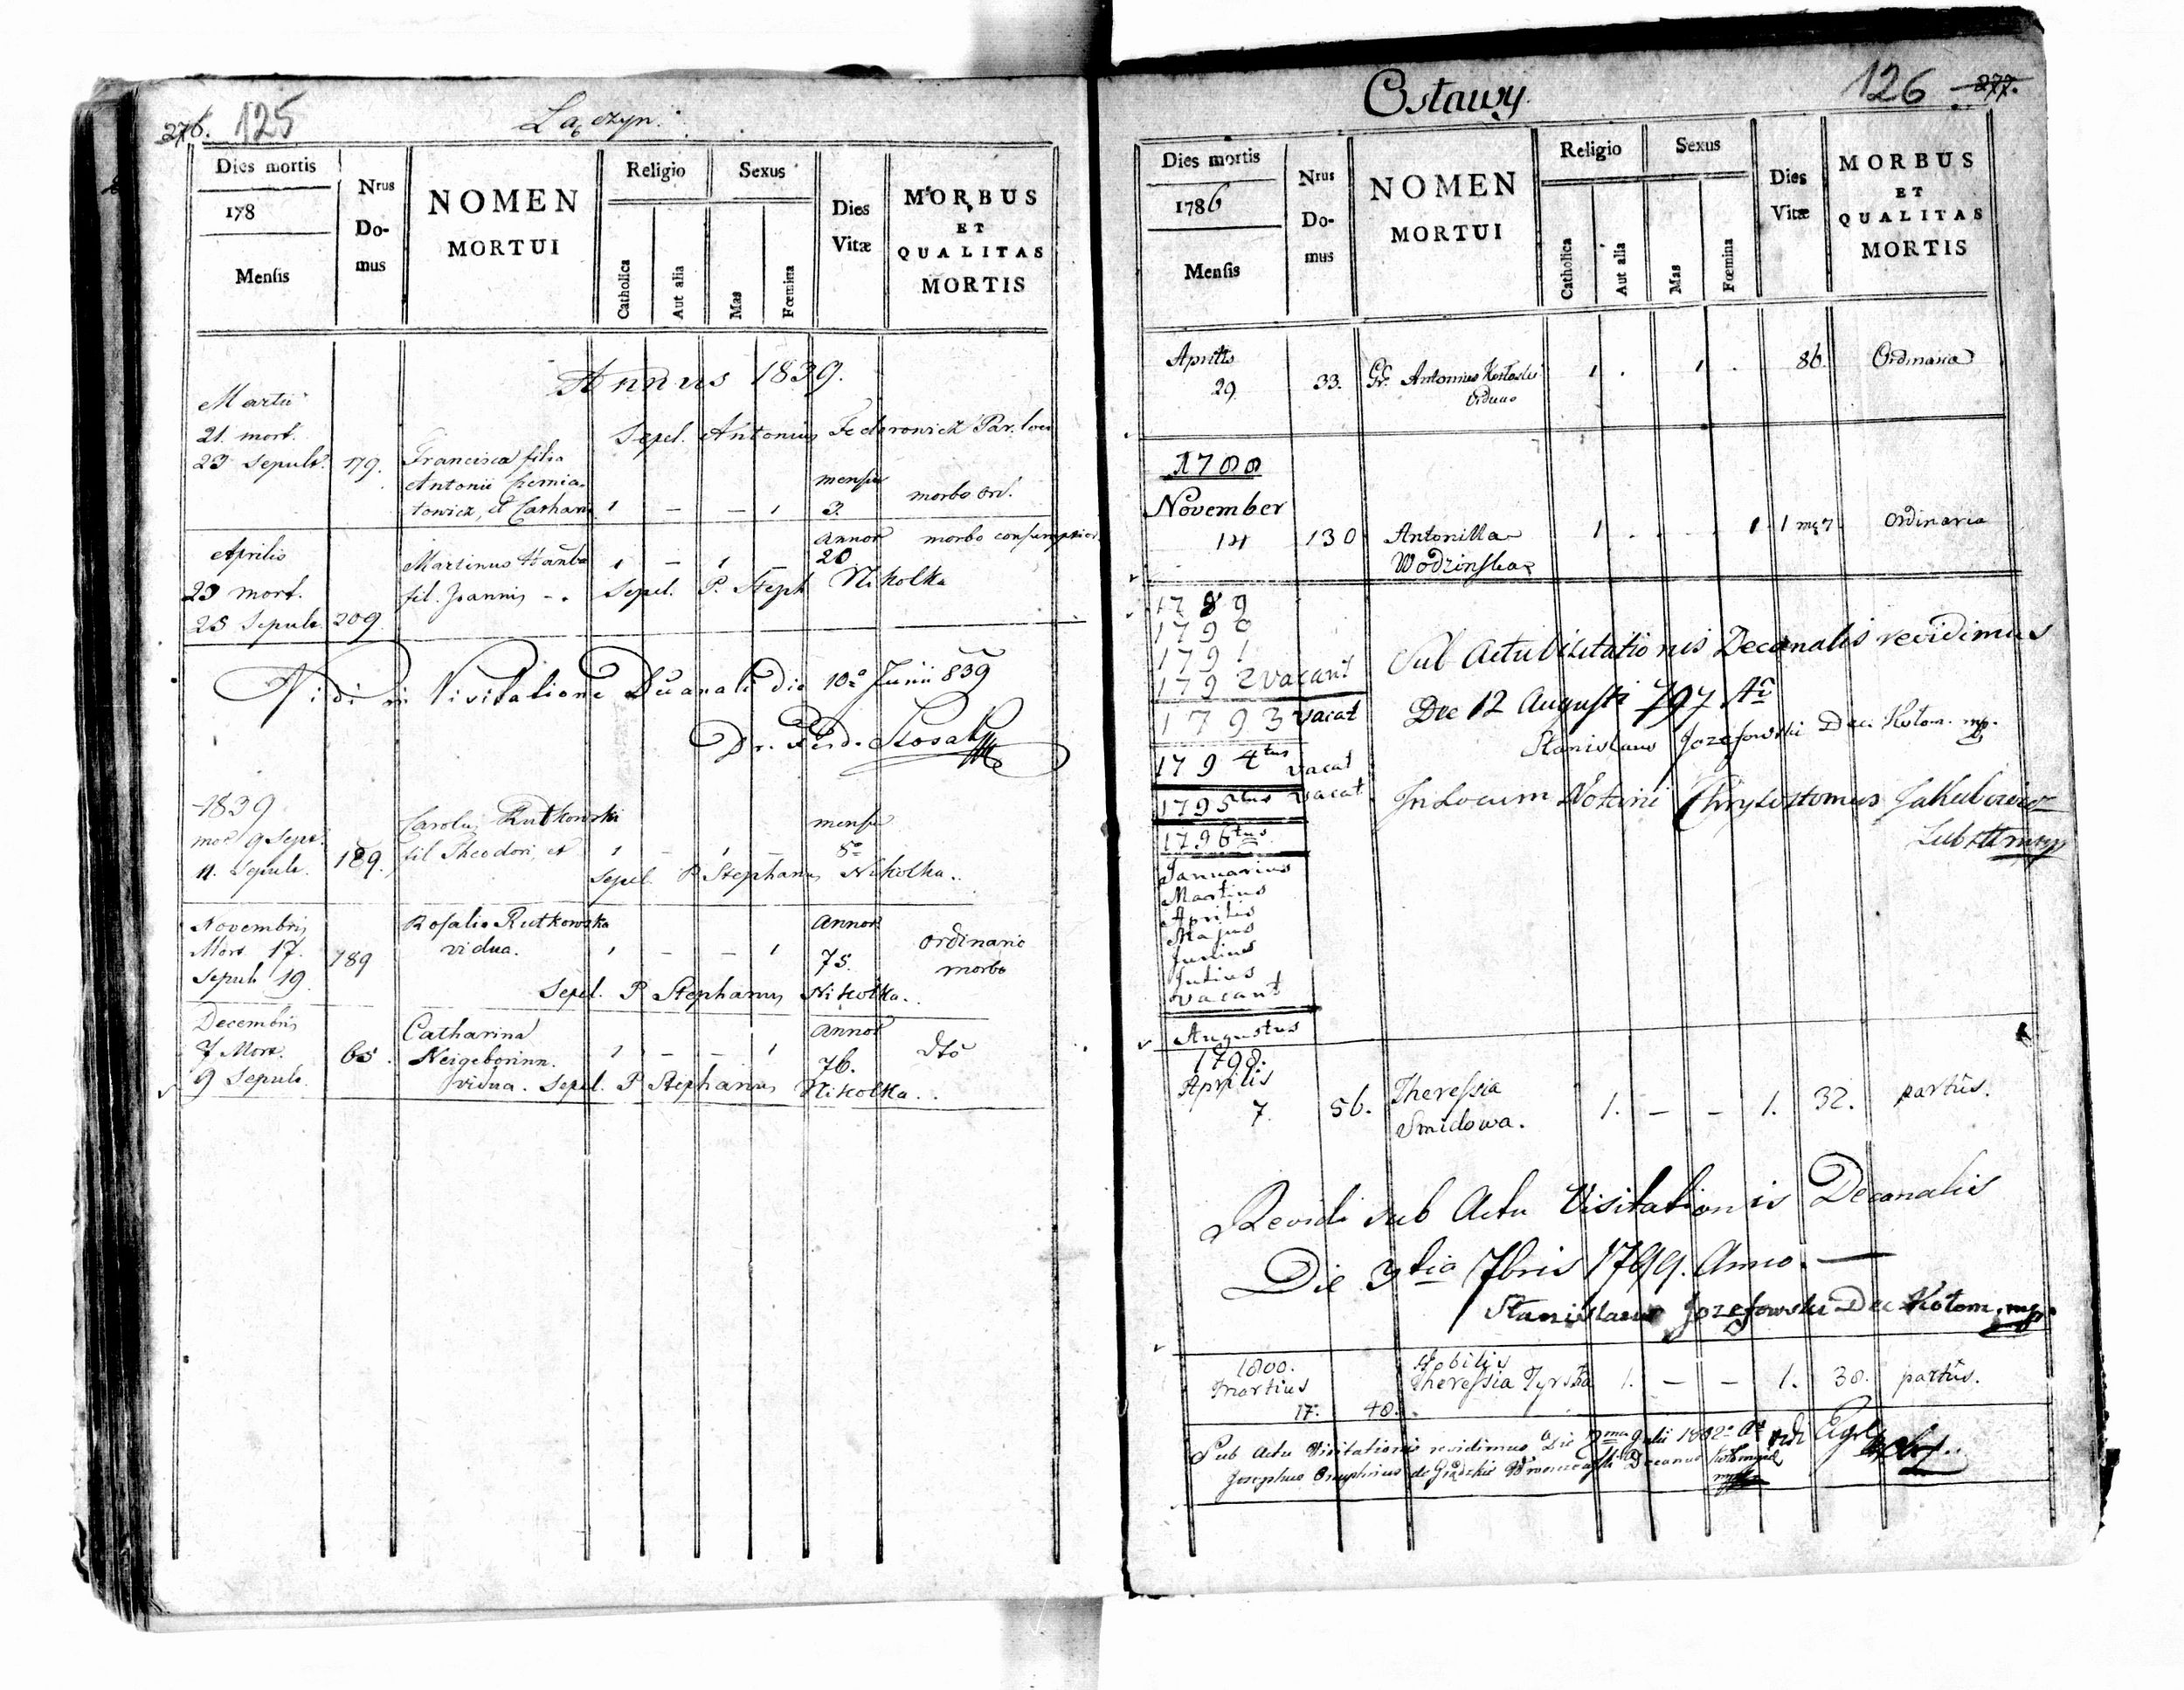 276. 125
Łączyn.
Dies mortis
178
Mensis
Nrus
Do-
mus
NOMEN
MORTUI
Religio
Catholica
Aut alia
Sexus
Mas
Fœmina
Dies
Vitæ
MORBUS
ET
QUALITAS
MORTIS
Annus 1839.
Martii
21. mort.
23 Sepult. 179.
Francisca filia
Antonii
towicz, et Cathari 1 – – 1
mensiu
3.
morbo ord.
Sepel. Antonius Federowicz Par. loci
Aprilis
23 mort.
25 Sepult. 209
Martinus
fil. Joannis – . 1 – 1 –
Annor
20
morbo
Sepel. P. Steph Nikolka
Vidi in Visitatione Decanali die 10a Junii 839
Dr. Ferd.
1839
mor 9 Sept.
11. Sepult. 189.
Carolus Rutkowski
fil Theodori, et 1 – 1 –
mensiu
8
Sepel. P Stephanus Nikolka.
Novembris
Mort 17.
Sepult 19. 189
Rosalia Rutkowska
vidua. 1 – – 1
Annor
75.
ordinario
morbo
Sepel. P Stephanus Nikolka.
Decembris
7 Mort.
9 Sepult. 65.
Catharina
Neigeborinn.
vidua. 1 – – 1
Annor
76.
dto
Sepel. P Stephanus Nikolka.
Osławy
126 277.
Dies mortis
1786
Mensis
Nrus
Do-
mus
NOMEN
MORTUI
Religio
Catholica
Aut alia
Sexus
Mas
Fœmina
Dies
Vitæ
MORBUS
ET
QUALITAS
MORTIS
Aprilis
29 33. Antonius
viduus 1 . 1 . 86. Ordinaria
1788
November
14 130 Antonilla
Wodzinska 1 . . 1 Ordinaria
1789
1790
1791
1792 vacant
1793 vacat
1794tus vacat
1795tus vacat
1796tus
Januarius
Martius
Aprilis
Majus
Junius
Julius
vacant
Augustus
Sub Actu Visitationis Decanalis revidimus
Die 12 Augusti 797 Ao
Stanislaus Jozefowski Dec. Kołom. mp.
In Locum Notarii Chrysostomus
1798.
Aprilis
7. 56. Theressia
Smidowa. 1. – – 1. 32. partûs.
Revidi sub Actu Visitationis Decanalis
Die 3tia 7bris 1799. Anno. —
Stanislaus Jozefowski Dec Kołom. mp.
1800.
Martius
17. 40. Nobilis
Theressia Tyrska 1. – – 1. 30. partûs.
Sub Actu Visitationis revidimus Die Julii 1802o Ao
Josephus Onuphrius de Decanus